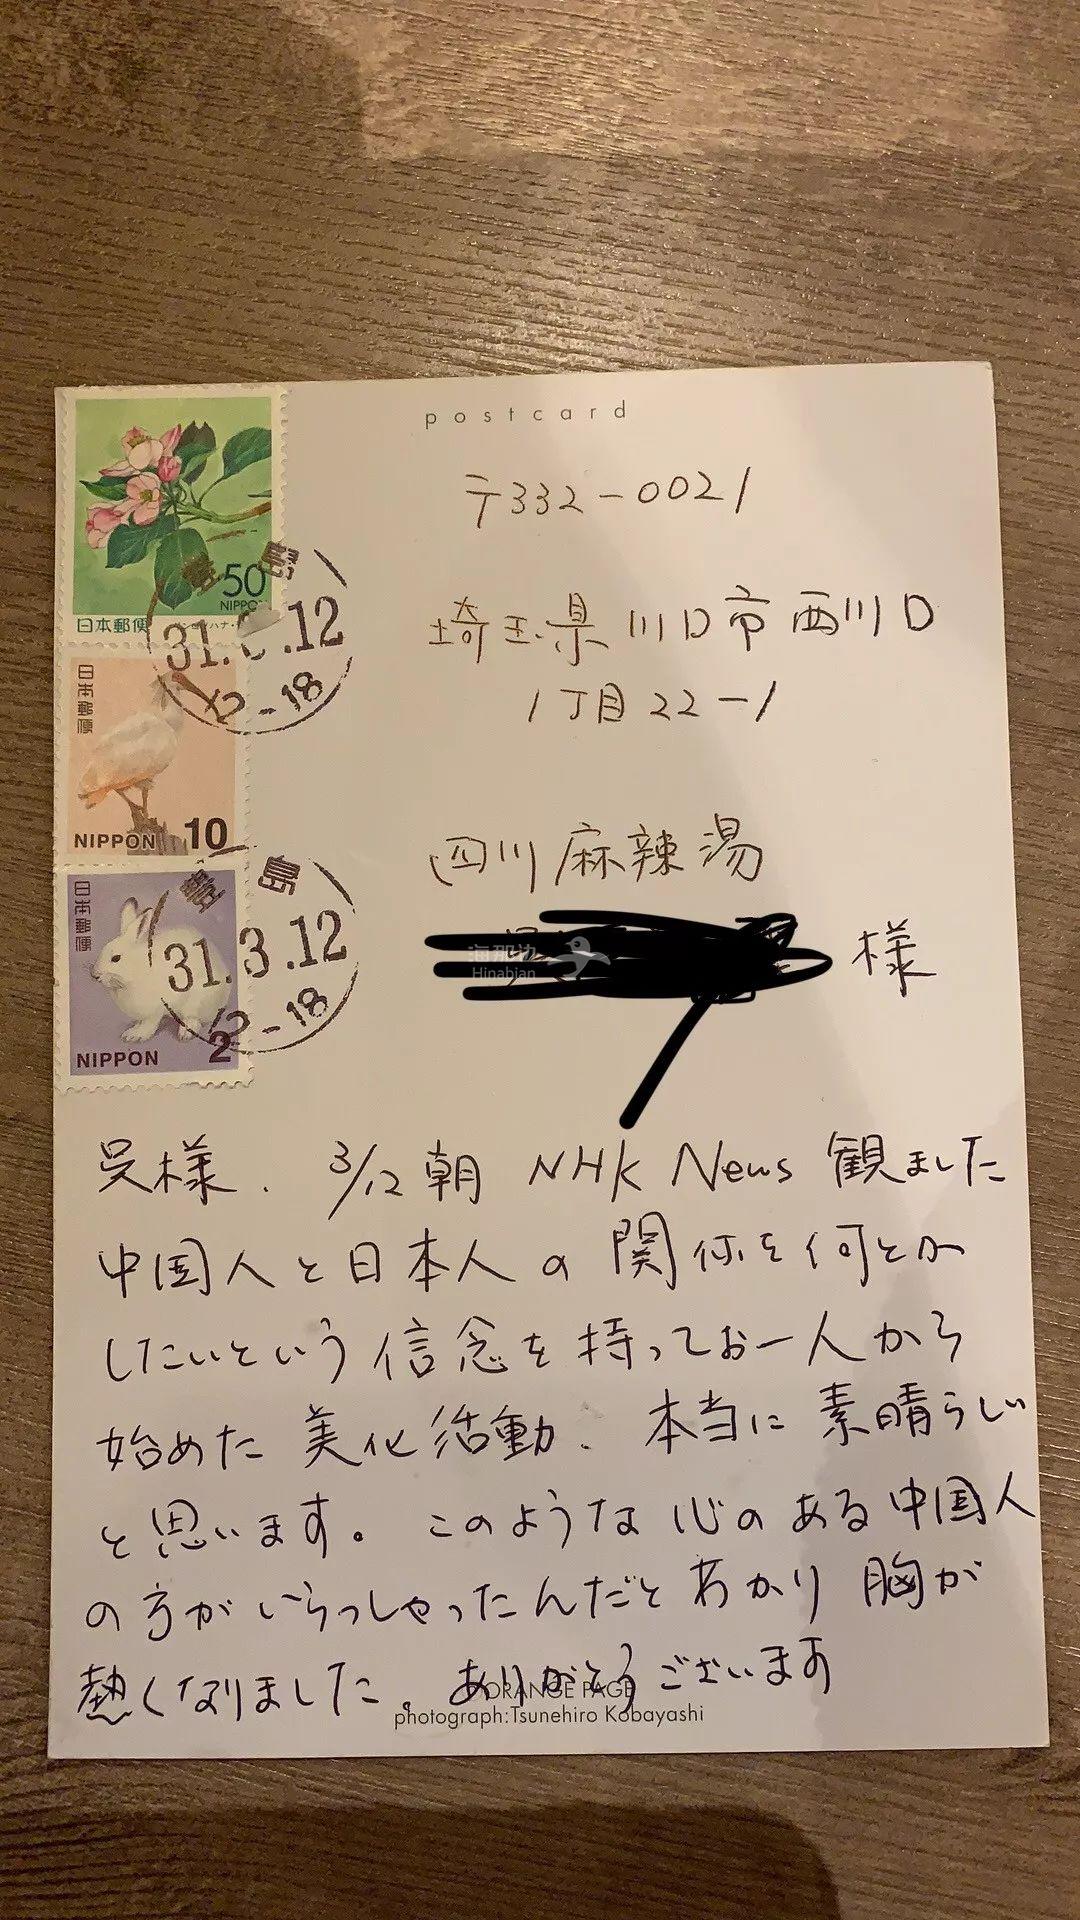 postcard
〒332-0021
埼玉県川口市西川口
1丁目22-1
四川麻辣湯
様
呉様、3/12朝 NHK News 観ました
中国人と日本人の関係を何とか
したいという信念を持ってお一人から
始めた美化活動、本当に素晴らしい
と思います。このような心のある中国人
の方がいらっしゃったんだとわかり胸が
熱くなりました。ありがとうございます
ORANGE PAGE
photograph:Tsunehiro Kobayashi
50
NIPPON
日本郵便
31. .12
12-18
日本郵便
NIPPON 10
日本郵便
豊島
31.3.12
12-18
NIPPON 2
海那边
Hinabian